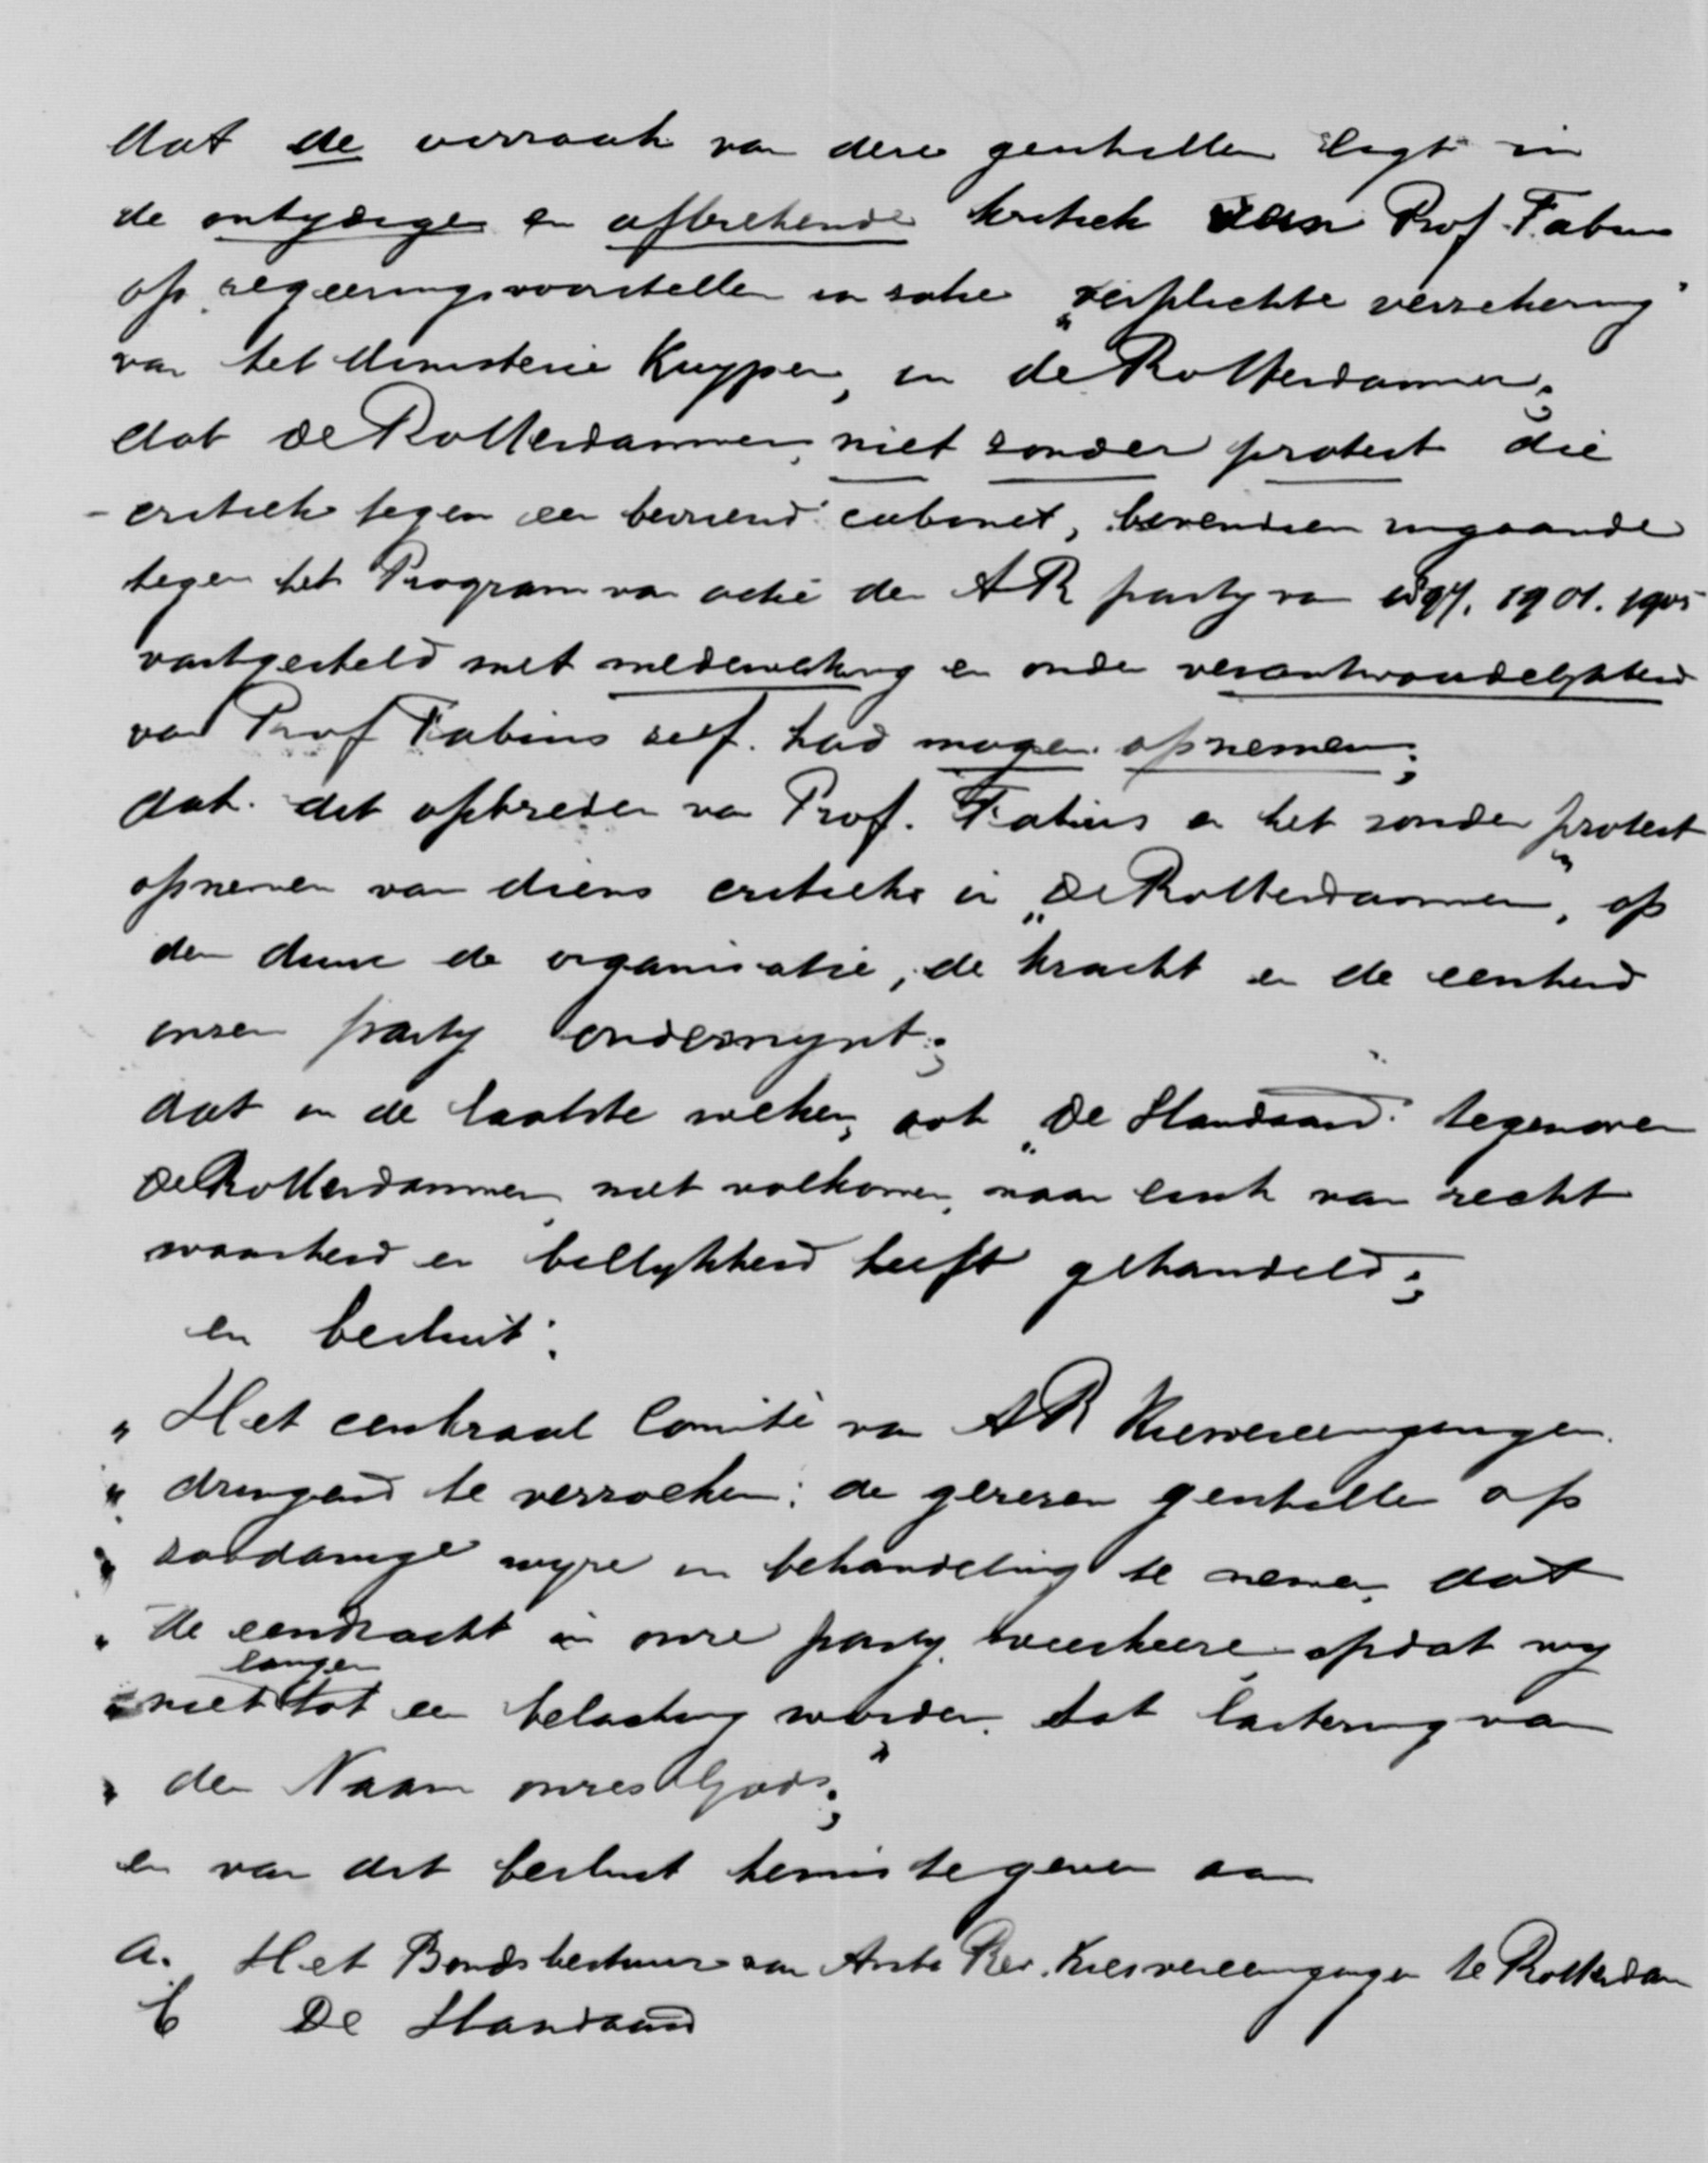 dat de oorzaak van deze geschillen ligt in
de ontijdige en afbrekende kritiek van Prof. Fabius
op regeeringsvoorstellen in zake „verplichte verzekering"
van het Ministerie Kuyper, in de Rotterdammer;
dat de Rotterdammer, niet zonder protest die
critiek tegen een bevriend cabinet, bovendien ingaande
tegen het Program van actie der AR party van 1897. 1901. 1905
vastgesteld met medewerking en onder verantwoordelykheid
van Prof Fabius zelf. had mogen opnemen;
dat dit optreden van Prof. Fabius en het zonder protest
opnemen van diens critiek in „De Rotterdammer", op
den duur de organisatie, de kracht en de eenheid
onzer party ondermynt;
dat in de laatste weken, ook „De Standaard" tegenover
De Rotterdammer niet volkomen, naar eisch van recht
waarheid en billykheid heeft gehandeld;
en besluit:
„ Het centraal Comité van AR Kiesvereenigingen
„ dringend te verzoeken: de gerezen geschillen op
„ zoodanige wyze in behandeling te nemen, dat
„ de eendracht in onze party weerkeere opdat wy
langer
„ niet tot een belasting worden, tot lastering van
„ den Naam onzes Gods";
en van dit besluit kennis te geven aan
a. Het Bondsbestuur van Anti Rev. Kiesvereenigingen te Rotterdam
b De Standaard